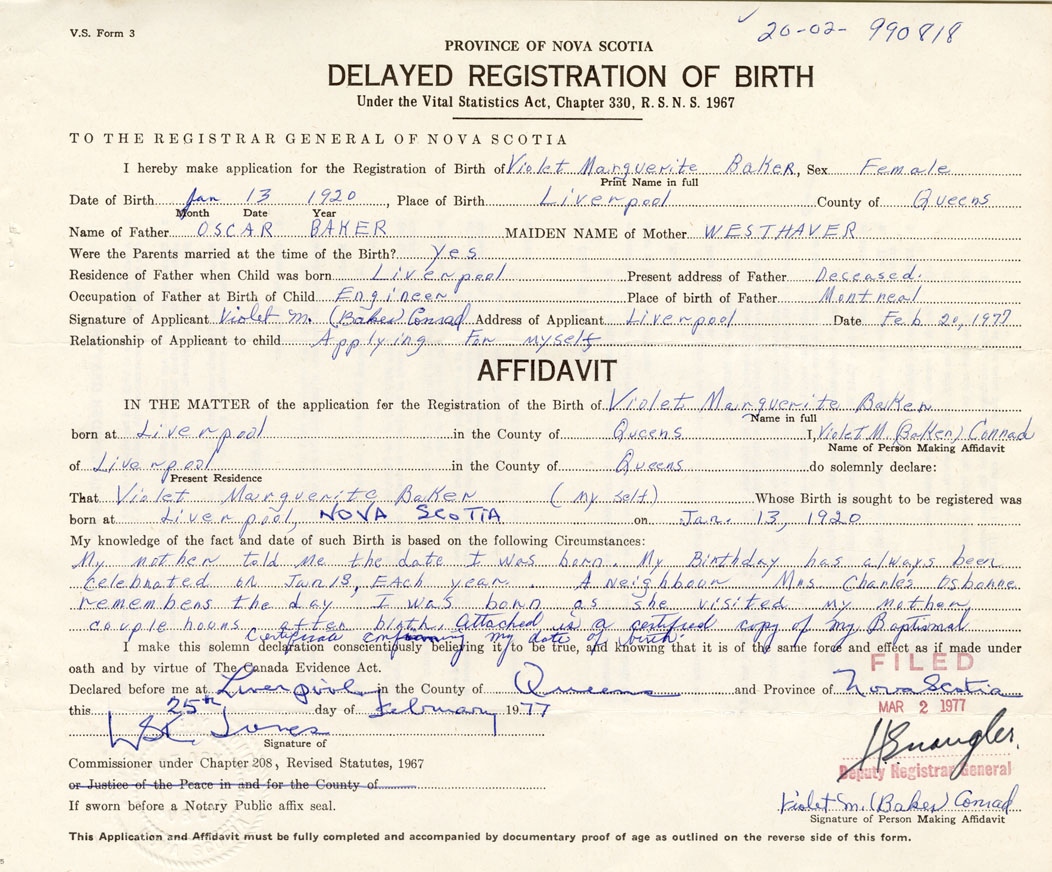 V.S. Form 3
20-02- 990818
PROVINCE OF NOVA SCOTIA
DELAYED REGISTRATION OF BIRTH
Under the Vital Statistics Act, Chapter 330, R. S. N. S. 1967
TO THE REGISTRAR GENERAL OF NOVA SCOTIA
I hereby make application for the Registration of Birth of Violet Marguerite Baker, Sex Female
Print Name in full
Date of Birth Jan 13 1920, Place of Birth Liverpool County of Queens
Month Date Year
Name of Father OSCAR BAKER MAIDEN NAME of Mother WESTHAVER
Were the Parents married at the time of the Birth? Yes
Residence of Father when Child was born Liverpool Present address of Father Deceased.
Occupation of Father at Birth of Child Engineer Place of birth of Father Montreal
Signature of Applicant Violet M. (Baker) Conrad Address of Applicant Liverpool Date Feb 20, 1977
Relationship of Applicant to child Applying For myself
AFFIDAVIT
IN THE MATTER of the application for the Registration of the Birth of Violet Marguerite Baker
Name in full
born at Liverpool in the County of Queens I, Violet M. (Baker) Conrad
Name of Person Making Affidavit
of Liverpool in the County of Queens do solemnly declare:
Present Residence
That Violet Marguerite Baker (my self) Whose Birth is sought to be registered was
born at Liverpool, NOVA SCOTIA on Jan. 13, 1920
My knowledge of the fact and date of such Birth is based on the following Circumstances:
My mother told me the date I was born. My Birthday has always been
celebrated on Jan 13, EAch year. A Neighbour Mrs Charles Osborne
remembers the day I was born as she visited my mother,
couple hours after birth. Attached is a certified copy of my Baptismal
Certificate confirming my date of birth.
I make this solemn declaration conscientiously believing it to be true, and knowing that it is of the same force and effect as if made under
oath and by virtue of The Canada Evidence Act.
FILED
Declared before me at Liverpool in the County of Queens and Province of Nova Scotia
this 25th day of February 1977
MAR 2 1977
Signature of
Commissioner under Chapter 208, Revised Statutes, 1967
Deputy Registrar General
or Justice of the Peace in and for the County of
If sworn before a Notary Public affix seal.
Violet M. (Baker) Conrad
Signature of Person Making Affidavit
This Application and Affidavit must be fully completed and accompanied by documentary proof of age as outlined on the reverse side of this form.